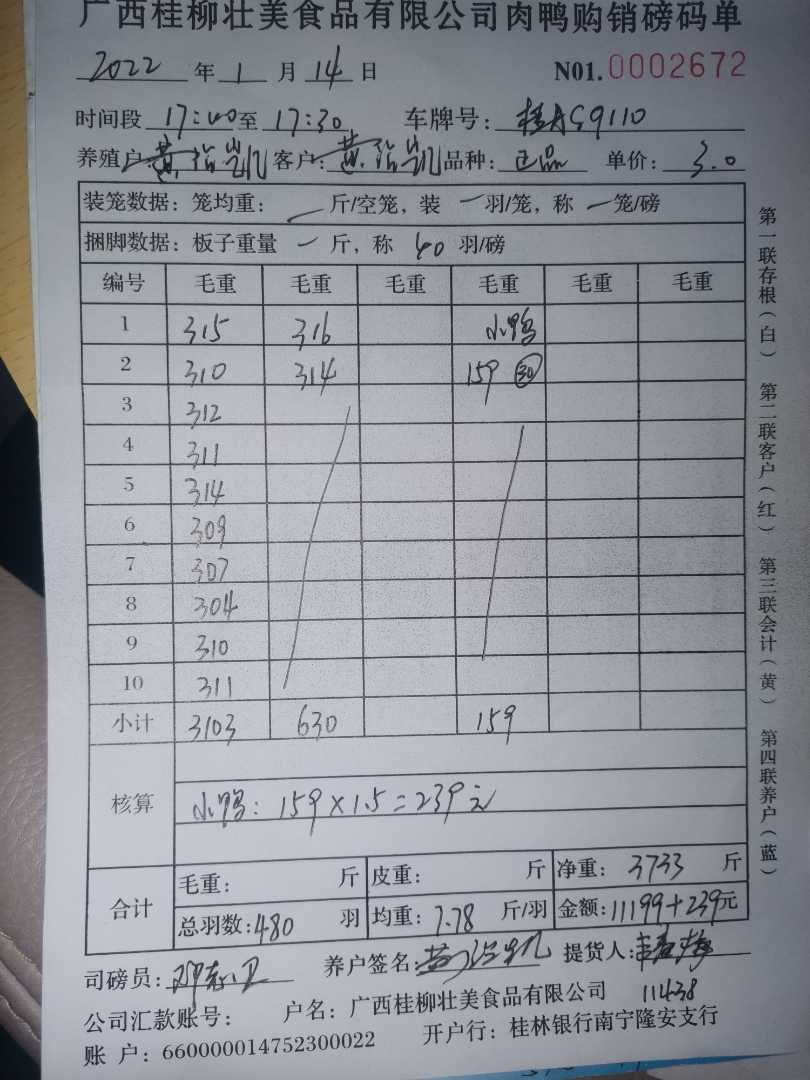 广西桂柳壮美食品有限公司肉鸭购销磅码单
2022 年 1 月 14 日 N01. 0002672
时间段 17:00 至 17:30 车牌号: 桂AG9110
养殖户: 黄 凯 客户: 黄 凯 品种: 正品 单价: 3.0
装笼数据: 笼均重: 斤/空笼, 装 一 羽/笼, 称 一 笼/磅
捆脚数据: 板子重量 一 斤, 称 40 羽/磅
编号 毛重 毛重 毛重 毛重 毛重 毛重
1 315 316 小鸭
2 310 314 159 30
3 312
4 311
5 314
6 309
7 307
8 304
9 310
10 311
小计 3103 630 159
核算 小鸭: 159×1.5=239元
合计 毛重: 斤 皮重: 斤 净重: 3733 斤
总羽数: 480 羽 均重: 7.78 斤/羽 金额: 11199+239元
司磅员: 养户签名: 提货人:
11438
公司汇款账号: 户名: 广西桂柳壮美食品有限公司
账 户: 660000014752300022 开户行: 桂林银行南宁隆安支行
第一联存根(白) 第二联客户(红) 第三联会计(黄) 第四联养户(蓝)